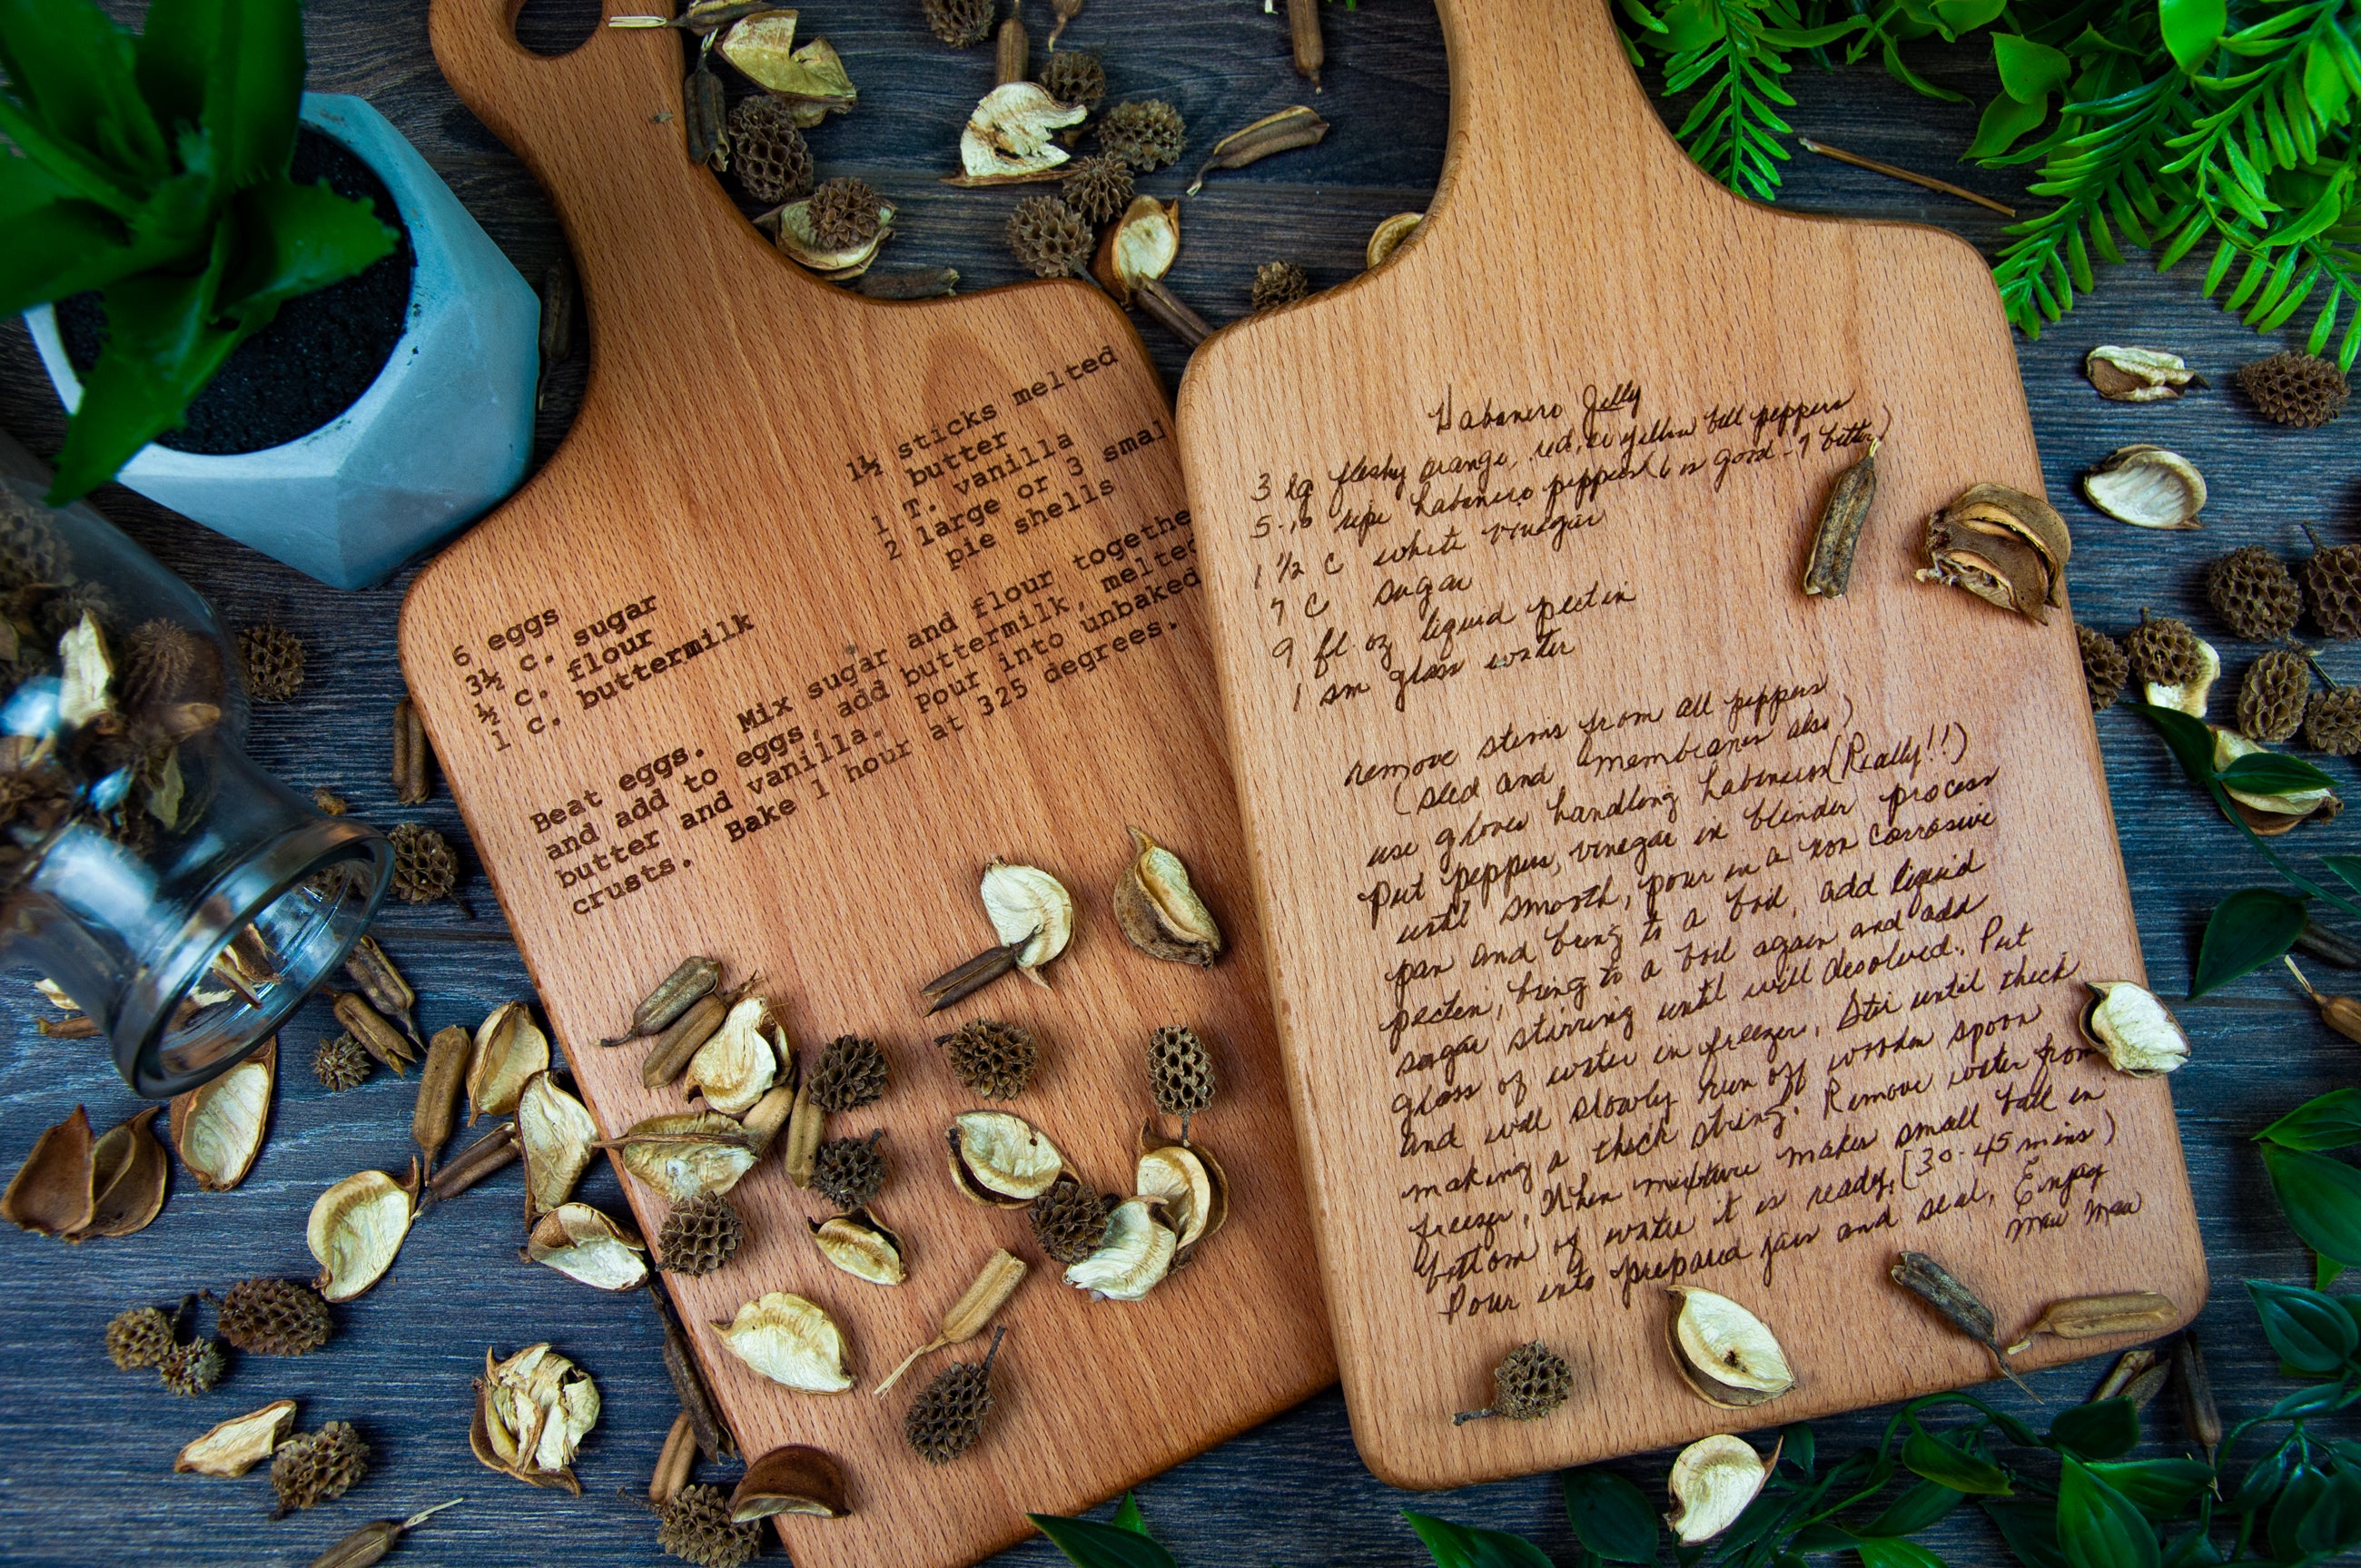 1½ sticks melted
butter
1 T. vanilla
2 large or 3 smal
pie shells
6 eggs
3½ c. sugar
½ c. flour
1 c. buttermilk
Beat eggs. Mix sugar and flour togethe
and add to eggs, add buttermilk, melted
butter and vanilla. Pour into unbaked
crusts. Bake 1 hour at 325 degrees.
Habanero Jelly
3 lg fleshy orange, red, or yellow bell peppers
5-10 ripe habanero peppers (6 is good - 7 better)
1 1/2 C white vinegar
7 C sugar
9 fl. oz liquid pectin
1 sm glass water
remove stems from all peppers
(seed and membranes also)
use gloves handling habaneros (Really!!)
Put peppers, vinegar in blender process
until smooth, pour in a non corrosive
pan and bring to a boil, add liquid
pectin, bring to a boil again and add
sugar stirring until well desolved. Put
glass of water in freezer, Stir until thick
and will slowly run off wooden spoon
making a thick string. Remove water from
freezer, When mixture makes small ball in
bottom of water it is ready, (30-45 mins)
Pour into prepared jars and seal, Enjoy
Maw Maw